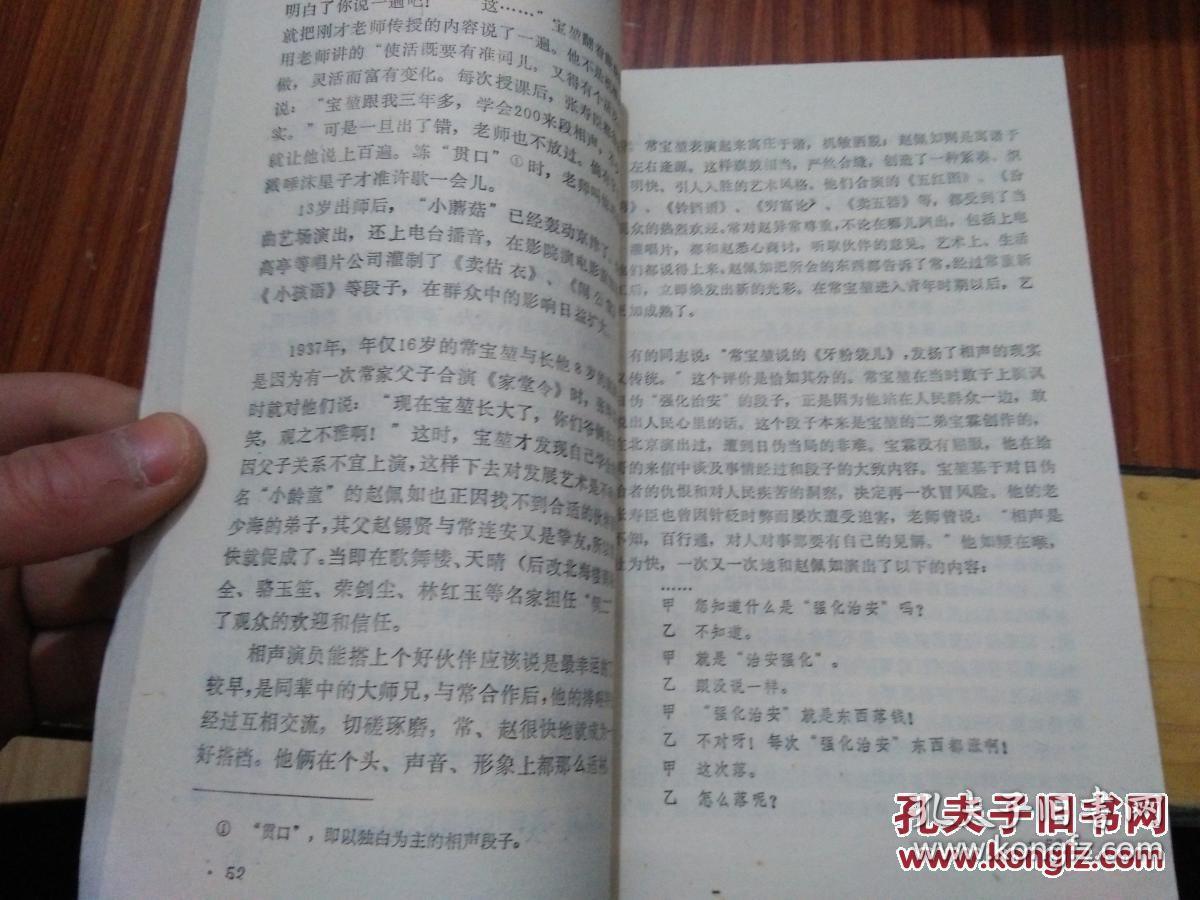 明白了你说一遍吧！” “这……” 宝堃翻着
就把刚才老师传授的内容说了一遍。他不是
用老师讲的 “使活既要有准词儿，又得有个
做，灵活而富有变化。每次授课后，张寿臣
说：“宝堃跟我三年多，学会200来段相声，
实。”可是一旦出了错，老师也不放过。
就让他说上百遍。练“贯口”①时，老师
溅唾沫星子才准许歇一会儿。
13岁出师后，“小蘑菇”已经轰动京津了
曲艺场演出，还上电台播音，在影院演电影
高亭等唱片公司灌制了《卖估衣》、
《小孩语》等段子，在群众中的影响日益扩大
1937年，年仅16岁的常宝堃与长他8岁的
是因为有一次常家父子合演《家堂令》时，张
时就对他们说：“现在宝堃长大了，你们爷俩
笑，观之不雅啊！”这时，宝堃才发现自己
因父子关系不宜上演，这样下去对发展艺术是不
名“小龄童”的赵佩如也正因找不到合适的伙
少海的弟子，其父赵锡贤与常连安又是挚友，所以
快就促成了。当即在歌舞楼、天晴（后改北海楼
全、骆玉笙、荣剑尘、林红玉等名家担任“倒二
了观众的欢迎和信任。
相声演员能搭上个好伙伴应该说是最幸运的
较早，是同辈中的大师兄，与常合作后，他的捧
经过互相交流，切磋琢磨，常、赵很快地就成为一
好搭档。他俩在个头、声音、形象上都那么适
① “贯口”，即以独白为主的相声段子。
· 52
常宝堃表演起来寓庄于谐，机敏洒脱；赵佩如则是寓谐于
左右逢源。这样旗鼓相当，严丝合缝，创造了一种紧凑、炽
明快、引人入胜的艺术风格。他们合演的《五红图》、《汾
》、《铃铛谱》、《穷富论》、《卖五器》等，都受到了当
观众的热烈欢迎。常对赵异常尊重，不论在哪儿演出，包括上电
灌唱片，都和赵悉心商讨，听取伙伴的意见。艺术上、生活
们都说得上来。赵佩如把所会的东西都告诉了常，经过常重新
后，立即焕发出新的光彩。在常宝堃进入青年时期以后，艺
加成熟了。
有的同志说：“常宝堃说的《牙粉袋儿》，发扬了相声的现实
义传统。”这个评价是恰如其分的。常宝堃在当时敢于上演讽
日伪“强化治安”的段子，正是因为他站在人民群众一边，敢
说出人民心里的话。这个段子本来是宝堃的二弟宝霖创作的，
在北京演出过，遭到日伪当局的非难。宝霖没有屈服，他在给
哥的来信中谈及事情经过和段子的大致内容。宝堃基于对日伪
治者的仇恨和对人民疾苦的洞察，决定再一次冒风险。他的老
张寿臣也曾因针砭时弊而屡次遭受迫害，老师曾说：“相声是
不知，百行通，对人对事都要有自己的见解。”他如鲠在喉，
吐为快，一次又一次地和赵佩如演出了以下的内容：
……
甲 您知道什么是“强化治安”吗？
乙 不知道。
甲 就是“治安强化”。
乙 跟没说一样。
甲 “强化治安”就是东西落钱！
乙 不对呀！每次“强化治安”东西都涨啊！
甲 这次落。
乙 怎么落呢？
孔夫子旧书网
www.kongfz.com